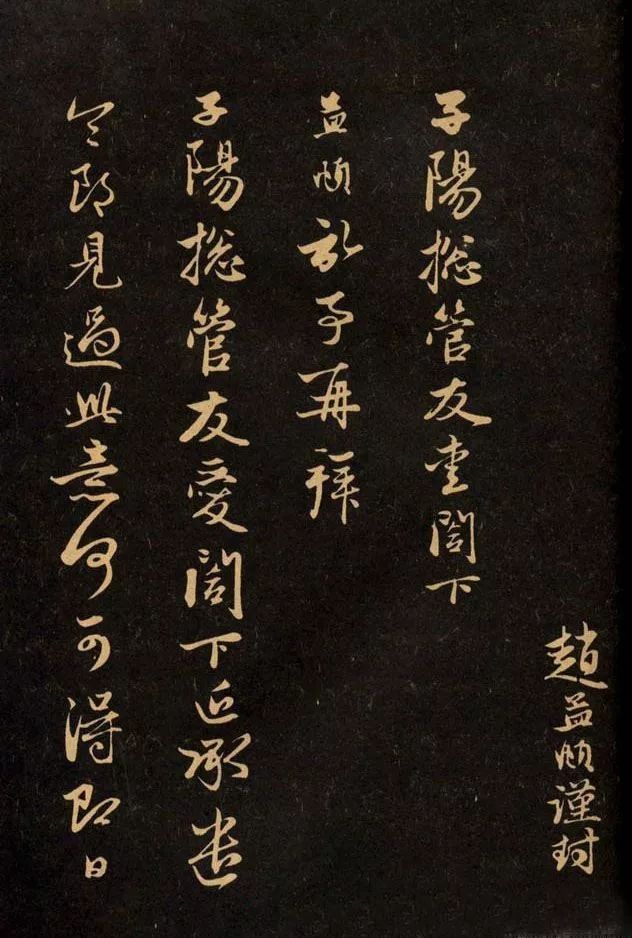 趙孟頫謹封
子陽摠管友愛閤下
孟頫記事再拜
子陽摠管友愛閤下近承遣
令郎見過此意何可得即日